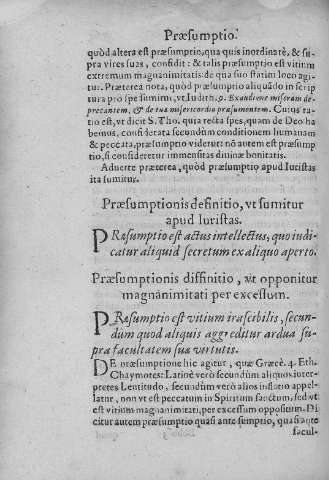 Præsumptio.
quòd altera est præsumptio, qua quis inordinatè, & su-
pra vires suas, confidit: & talis præsumptio est vitium
extremum magnanimitatis: de qua suo statim loco agi-
tur. Præterea nota, quòd præsumptio aliquãdo in scrip
tura pro spe sumitur, vt Iudith. 9. Exaudi me miseram de-
precantem, & de tua misericordia præsumentem. Cuius ra-
tio est, vt dicit S. Tho. quia recta spes, quam de Deo ha
bemus, considerata secundùm conditionem humanam
& peccata, præsumptio videtur: nõ autem est præsump
tio, si consideretur immensitas diuinæ bonitatis.
Aduerte præterea, quòd præsumptio apud Iuristas
ita sumitur.
Præsumptionis definitio, vt sumitur
apud Iuristas.
PRæsumptio est actus intellectus, quo indi-
catur aliquid secretum ex aliquo aperto.
Præsumptionis diffinitio, vt opponitur
magnanimitati per excessum.
PRæsumptio est vitium irascibilis, secun-
dum quod aliquis aggreditur ardua su-
pra facultatem suæ virtutis.
DE præsumptione hic agitur, quæ Græcè. 4. Eth.
Chaymotes: Latinè verò secundùm aliquos inter-
pretes Lentitudo, secundùm verò alios inflatio appel-
latur, non vt est peccatum in Spiritum sanctum, sed vt
est vitium magnanimitati, per excessum oppositum. Di
citur autem præsumptio quasi ante sumptio, quasi ante
facul-